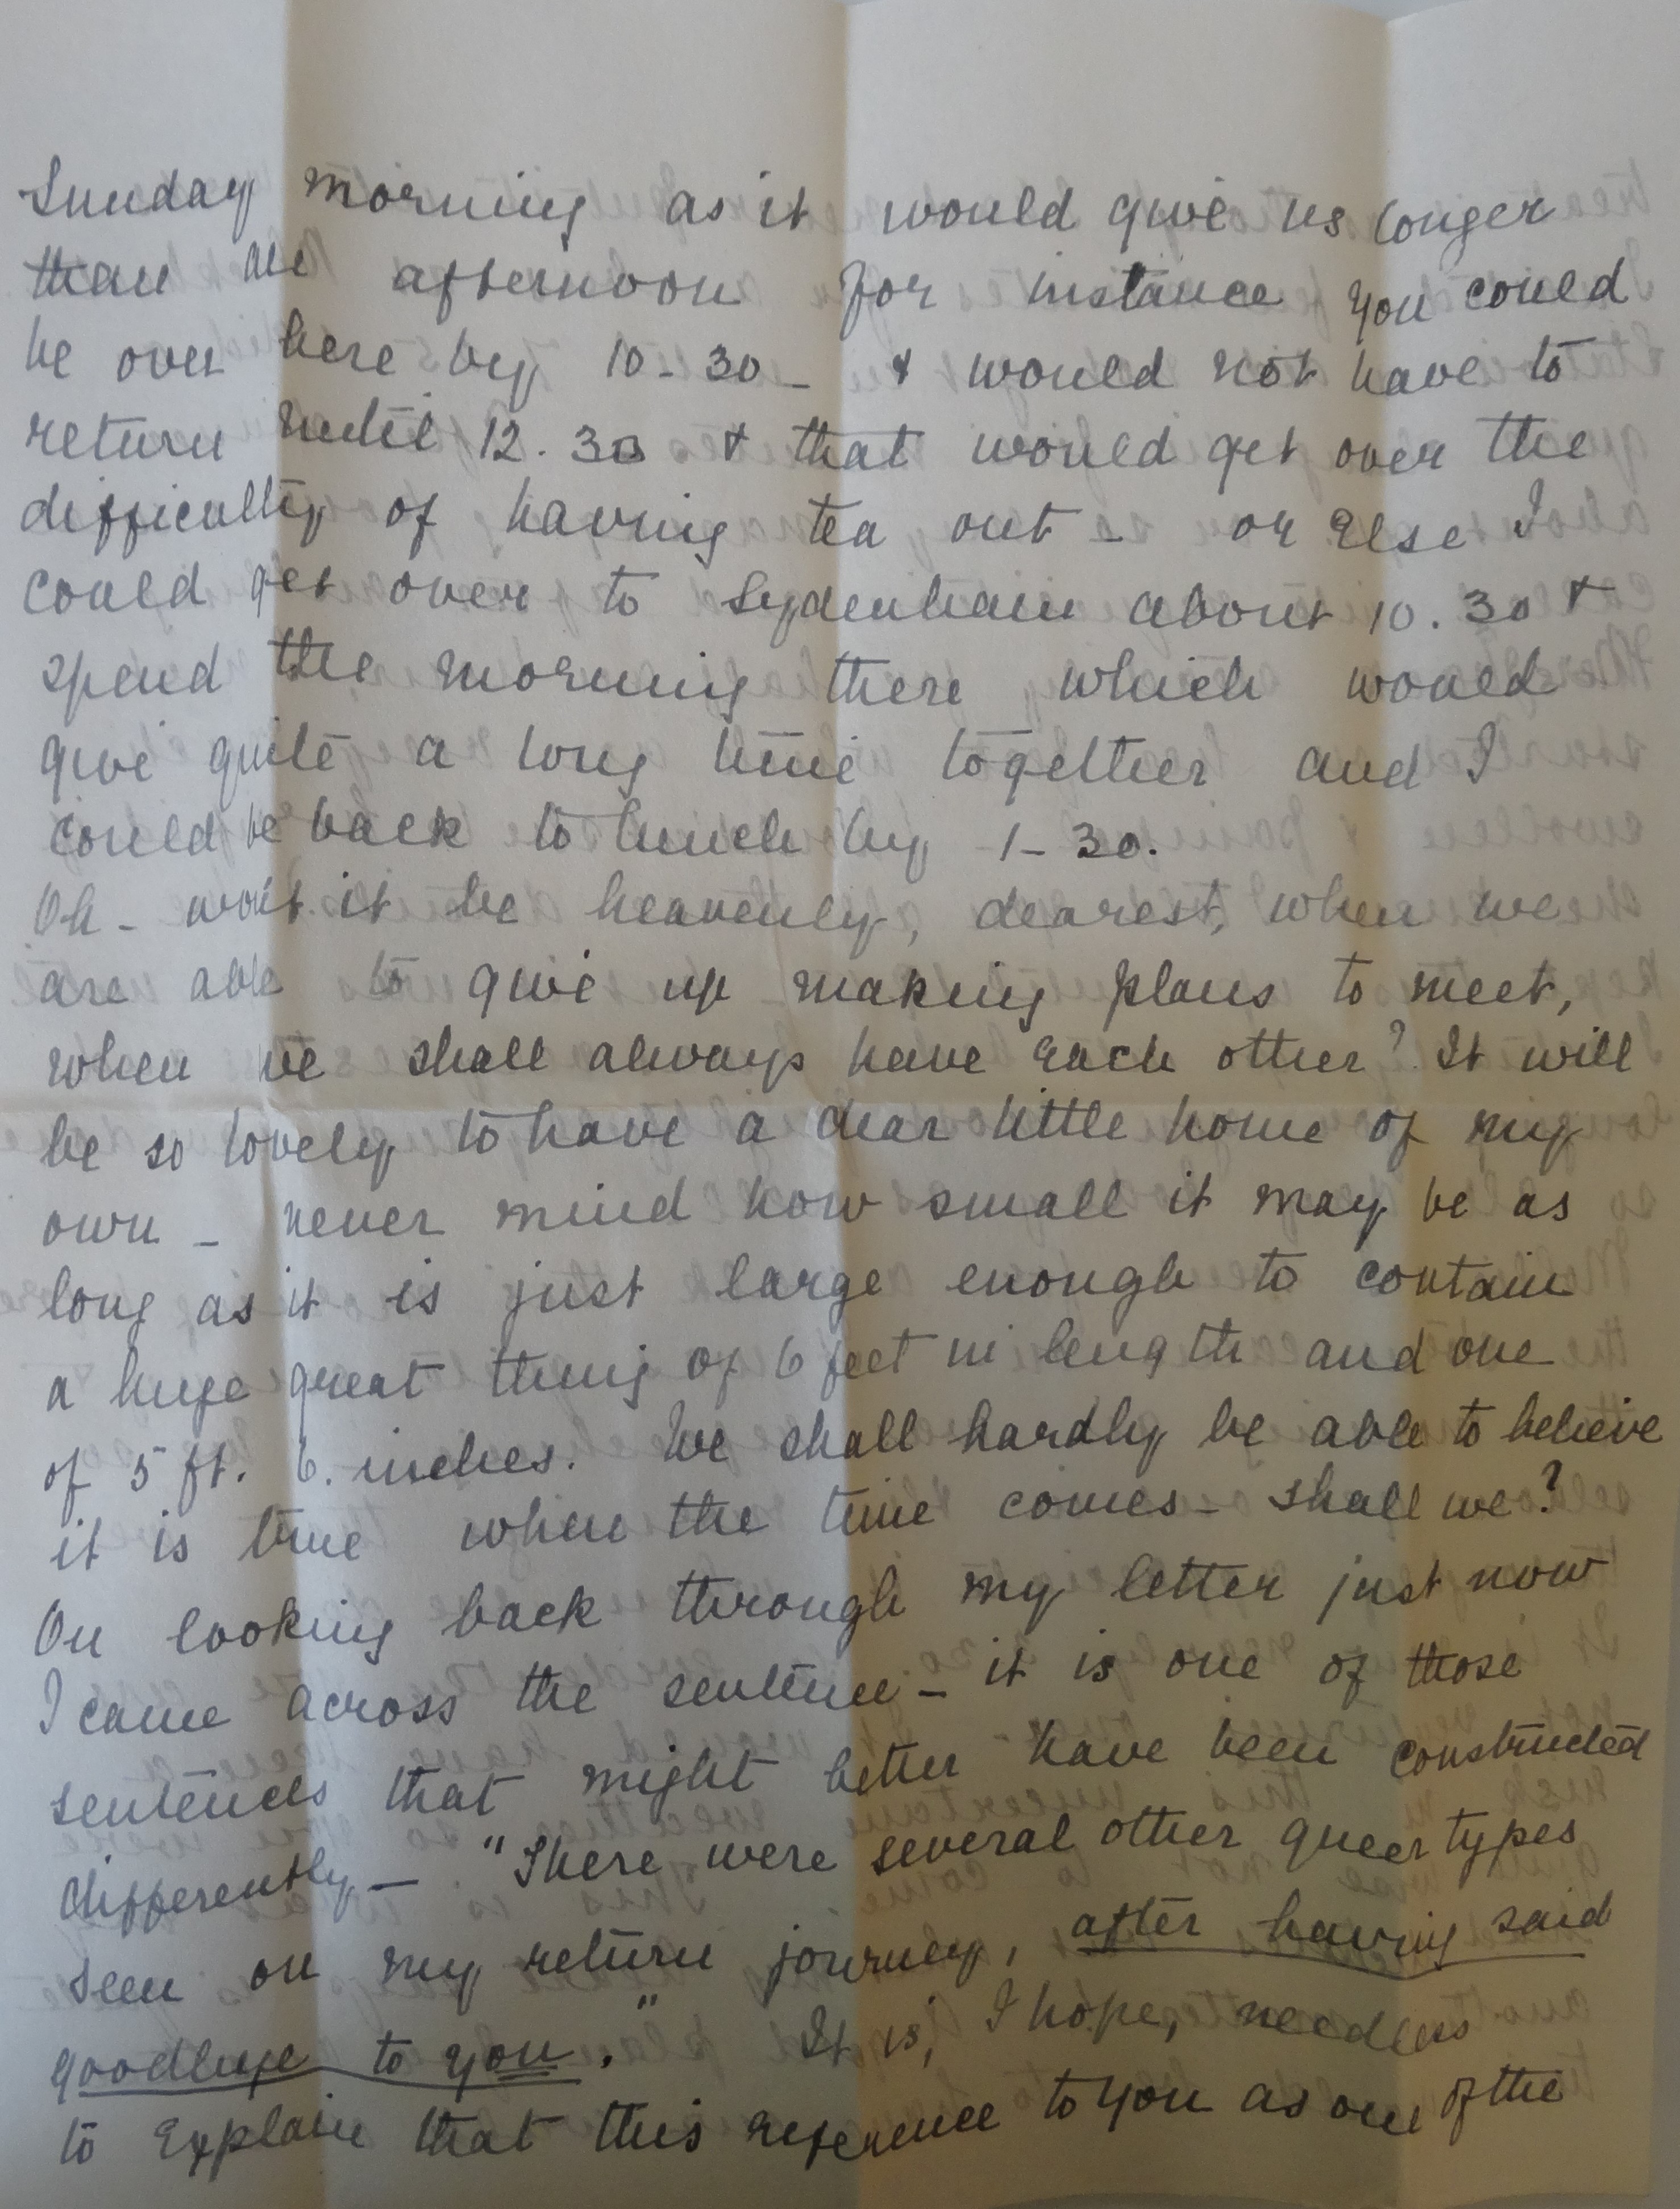 Sunday morning as it would give us longer
than an afternoon for instance you could
be over here by 10-30 - & would not have to
return until 12.30 & that would get over the
difficulty of having tea out - or else I
could get over to Sydenham about 10.30 &
spend the morning there which would
give quite a long time together and I
could be back to lunch by 1-30.
Oh - won't it be heavenly, dearest, when we
are able to give up making plans to meet,
when we shall always have each other? It will
be so lovely to have a dear little home of my
own - never mind how small it may be as
long as it is just large enough to contain
a huge great thing of 6 feet in length and one
of 5 ft. 6. inches. We shall hardly be able to believe
it is true when the time comes - shall we?
On looking back through my letter just now
I came across the sentence - it is one of those
sentences that might better have been constructed
differently - "There were several other queer types
seen on my return journey, after having said
goodbye to you." It is, I hope, needless
to explain that this reference to you as one of the